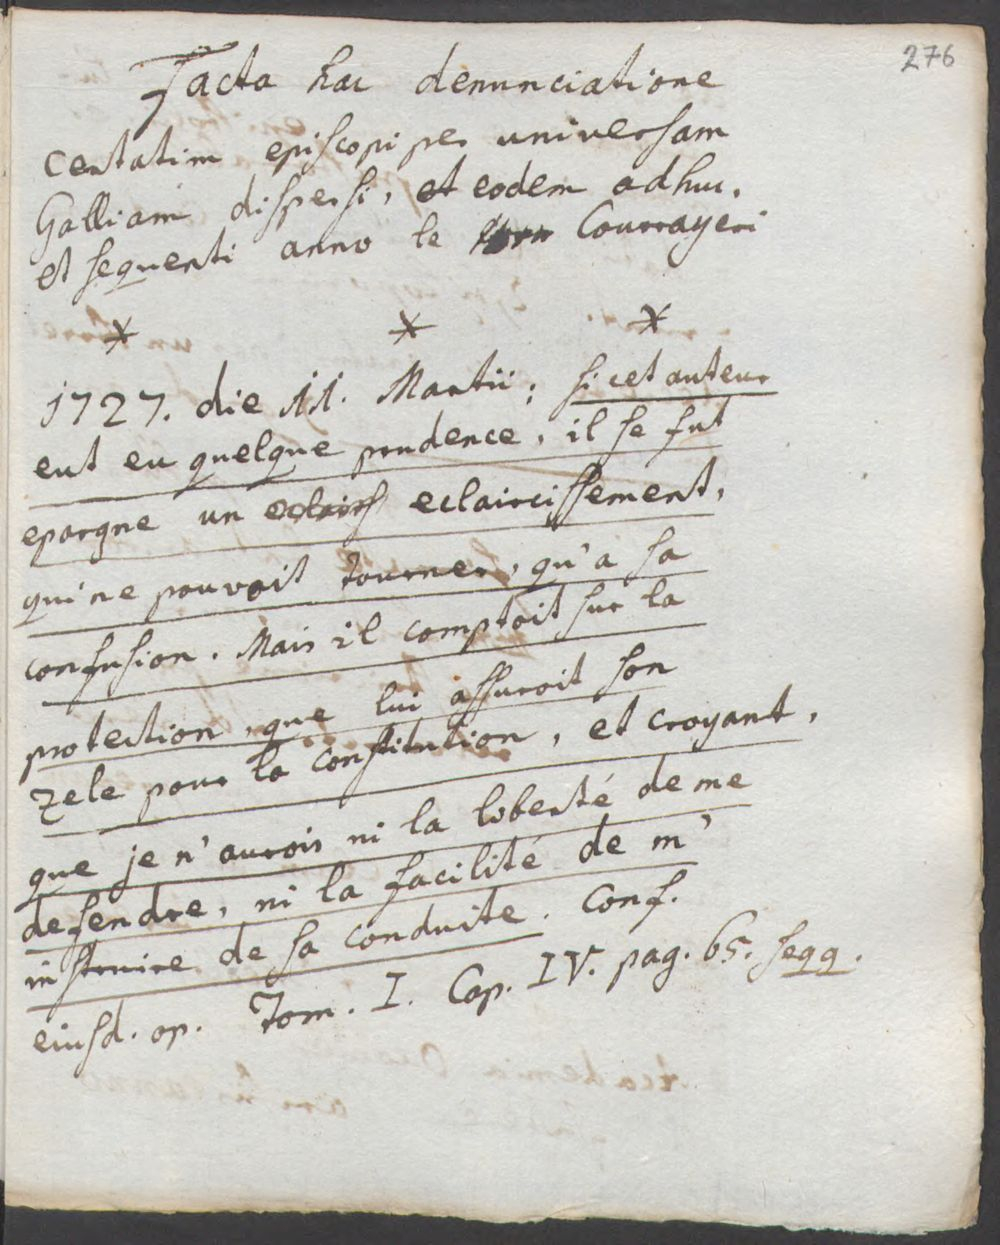 276
Facta hac denunciatione
certatim episcopi per universam
Galliam dispersi, et eodem adhuc,
et sequenti anno le Courrayeri
* * *
1727. die 11. Martii; si cet auteur
eut eu quelque prudence, il se fut
epargne un eclairs eclaircissement,
qui ne pouvoit tourner, qu'a sa
confusion. Mais il comptoit sur la
protection, que lui assuroit son
zele pour la constitution, et croyant,
que je n'aurois ni la liberté de me
defendre, ni la facilité de m'
instruire de sa conduite. Conf.
eiusd. op. Tom. I. Cap. IV. pag. 65. seqq.